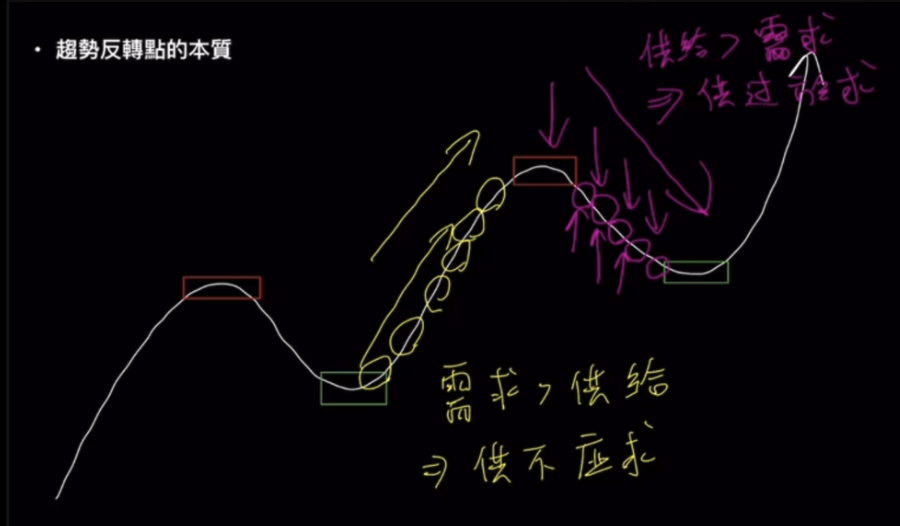 • 趨勢反轉點的本質
供給 > 需求
⇒ 供过於求
需求 > 供給
⇒ 供不应求